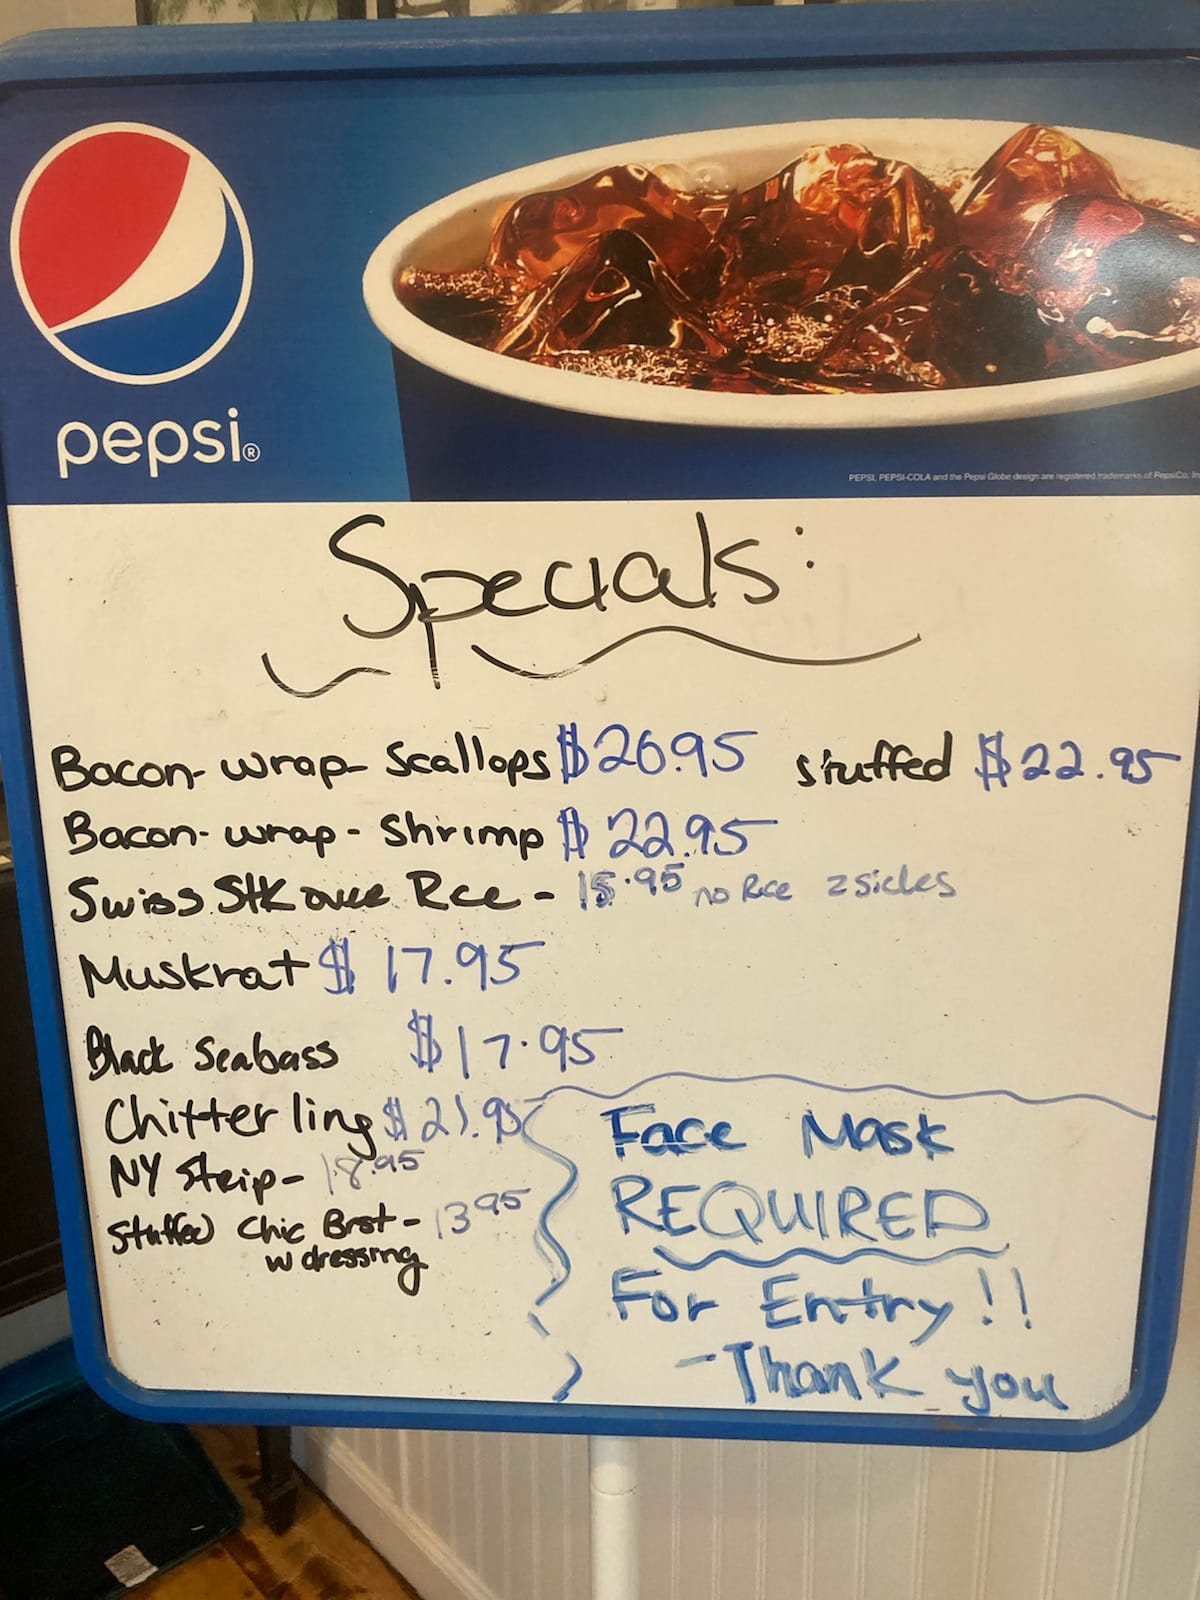 pepsi®
PEPSI, PEPSI-COLA and the Pepsi Globe design are registered trademarks of PepsiCo, In
Specials:
Bacon-wrap-Scallops $20.95 stuffed $22.95
Bacon-wrap-Shrimp $22.95
Swiss Stk over Rce - 15.95 no Rce 2 sides
Muskrat $17.95
Black Seabass $17.95
Chitterling $21.95
NY Strip- 18.95
Stuffed Chic Brst- 13 95
w dressing
Face Mask
REQUIRED
For Entry!!
-Thank you